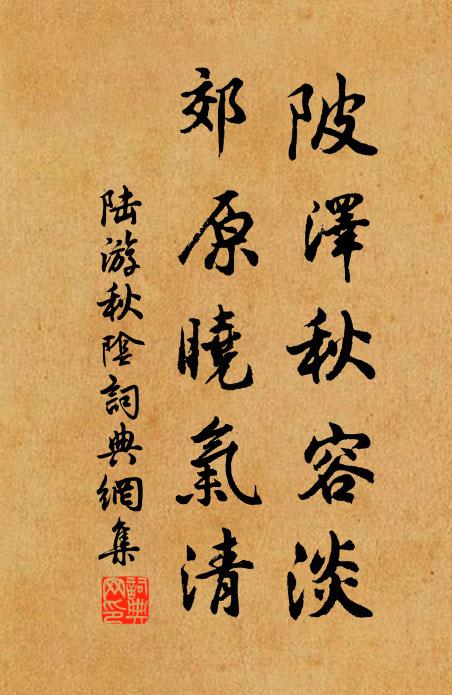 陂澤秋容淡
郊原曉氣清
陸游秋陰詞典網集
詞典網印